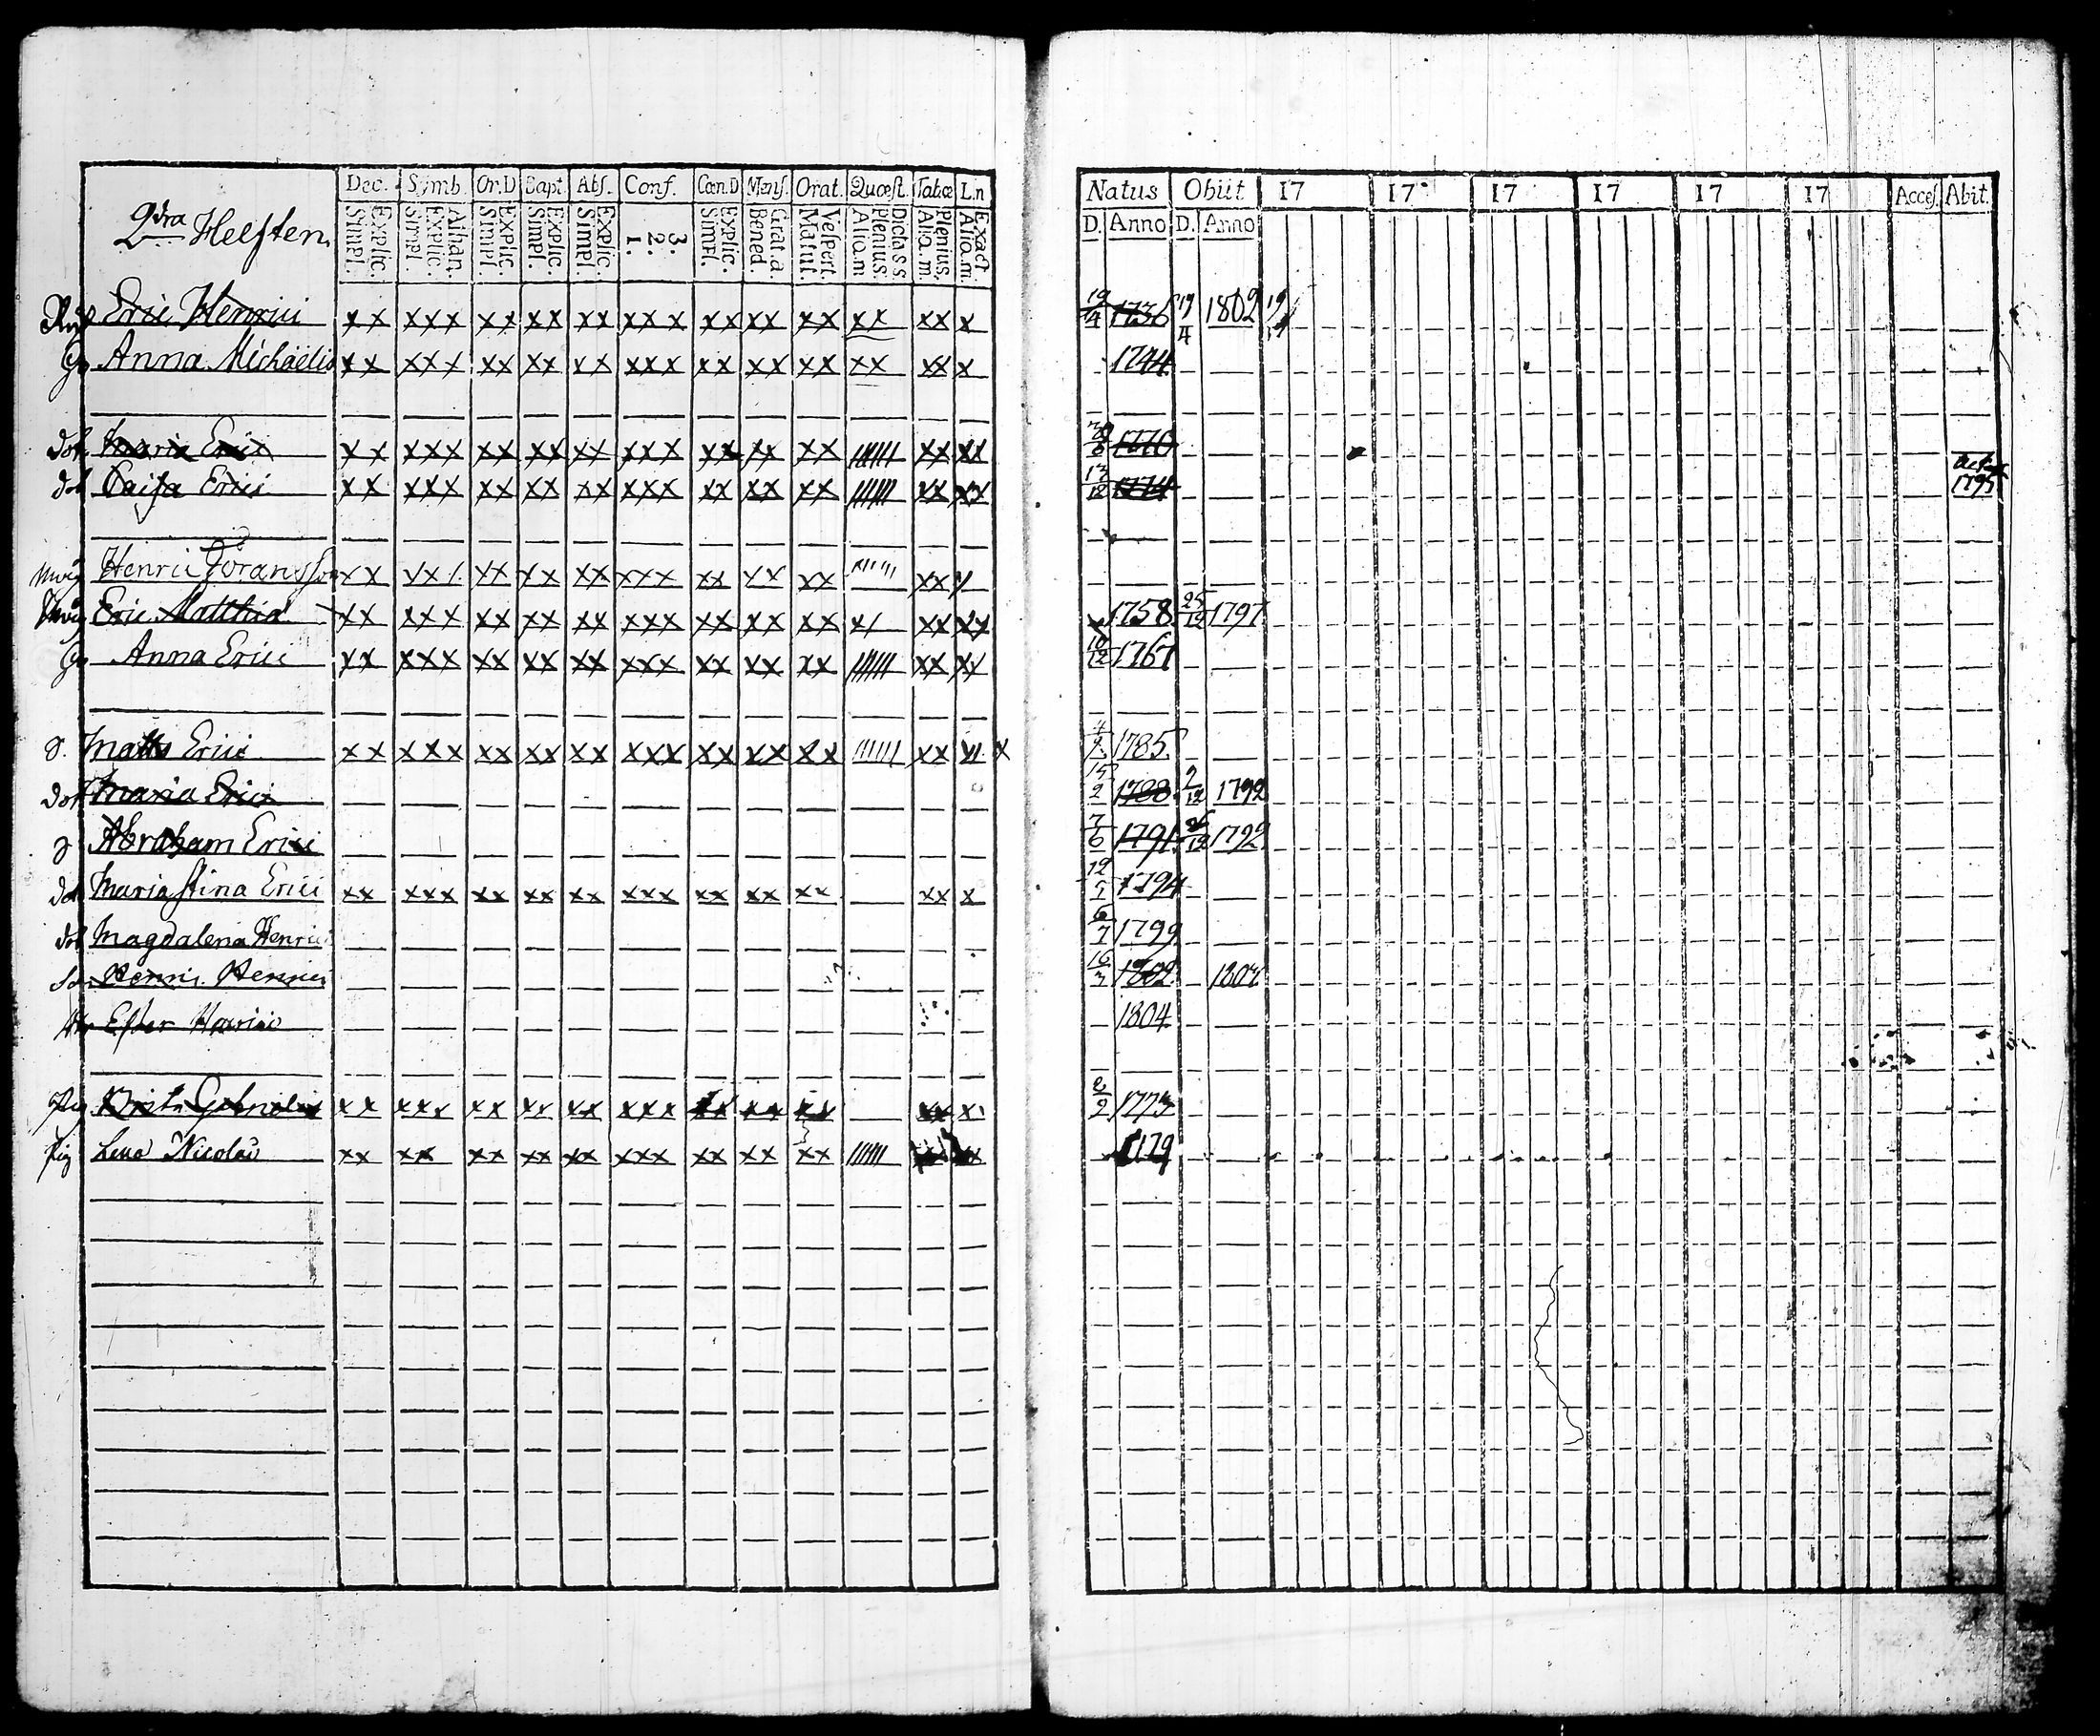 2dra Helften.
Dec. Symb. Or.D Bapt. Abs. Conf. Cœn.D Mens. Orat. Quæst. Tabæ L.n
Explic. Simpl. Athan. Explic. Simpl. Explic. Simpl. Explic. Simpl. Explic. Simpl. 3. 2. 1. Explic. Simpl. Grat.a Bened. Vespert. Matut. Dicta s s Plenius. Aliq.m Plenius. Aliq.m. Exact Aliq.m.
Natus Obiit 17 17 17 17 17 17 Acces. Abit.
D. Anno D. Anno
Eric Henrici xx xxx xx xx xx xxx xx xx xx xx xx x 19/4 1736 17/4 1802
Anna Michaelis xx xxx xx xx xx xxx xx xx xx xx xx x 1744
dot. Maria Erici xx xxx xx xx xx xxx xx xx xx |||||| xx xx 1770
dot Caisa Erici xx xxx xx xx xx xxx xx xx xx |||||| xx xx 17/12 1774 1795
Henric Göransson xx xxx xx xx xx xxx xx xx xx |||||| xx x
Eric Matthiæ xx xxx xx xx xx xxx xx xx xx x/ xx xx 1758 25/12 1797
Anna Erici xx xxx xx xx xx xxx xx xx xx |||||| xx xx 10/12 1767
S. Matts Erici xx xxx xx xx xx xxx xx xx xx |||||| xx x/ x 1785
dot Maria Erici 15/2 1788 2/12 1792
S Abraham Erici 7/6 1791 /12 1792
dot Maria Stina Erici xx xxx xx xx xx xxx xx xx xx xx x 12/5 1794
dot Magdalena Henrici 6/7 1799
So Henric Henrici 16/3 1802 180
Ester Henrici 1804
Pig Brita xx xxx xx xx xx xxx xx xx xx xx x 2/9 1773
Pig Lena Nicolai xx xx xx xx xx xxx xx xx xx |||||| 179